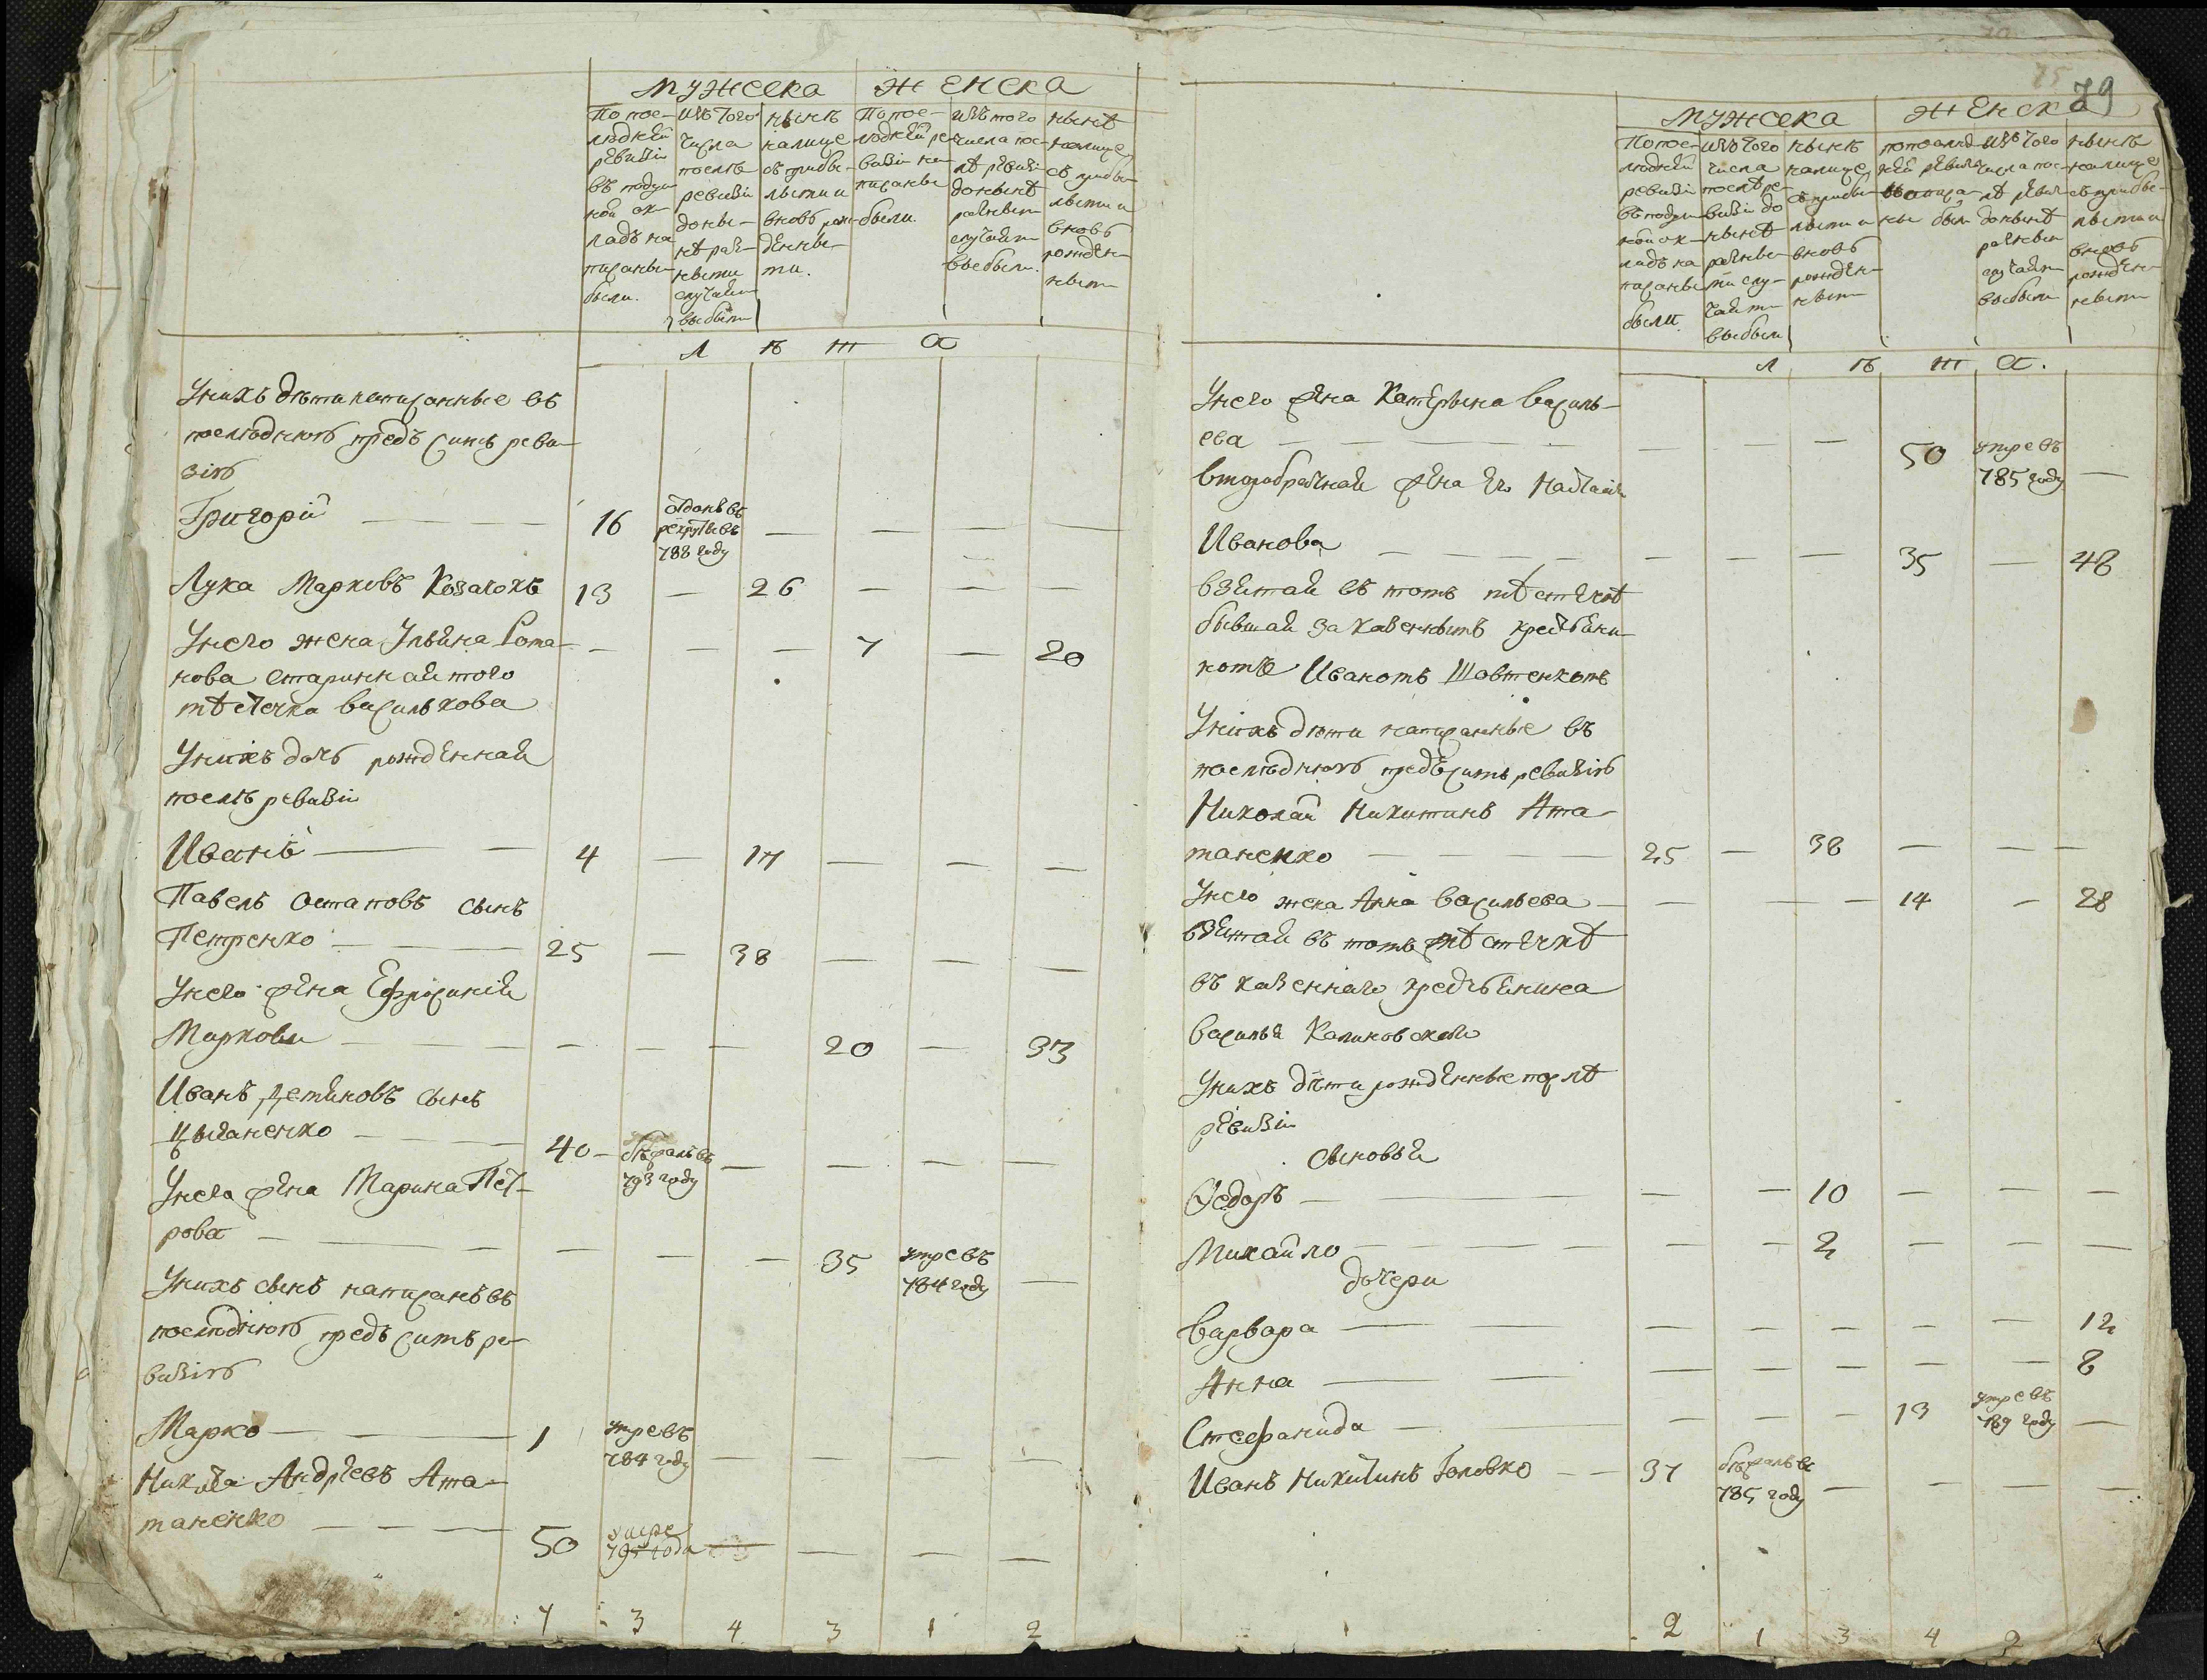 мужеска женска
По пос-
лѣдней
ревизіи
въ подуш-
ной ок-
ладъ на
писаны
были.
изъ того
числа
послѣ
ревизіи
до ны-
нѣ раз-
ными
случаями
выбыли
нынѣ
налице
съ прибы-
лыми и
вновь рож-
денны-
ми.
По пос-
лѣдней ре-
визіи на-
писаны
были.
изъ того
числа пос-
лѣ ревизіи
до нынѣ
разными
случаями
выбыли.
нынѣ
налице
съ прибы-
лыми и
вновь
рожден-
ными
лѣта
У нихъ дѣти написанные въ
последнюю предъ симъ реви-
зію
Григорій — 16 отданъ въ
рекруты въ
788 году — — — —
Лука Марковъ Козачокъ 13 — 26 — — —
У него жена Ульяна Рома- — — — 7 — 20
нова старинная того
мѣстечка Василькова
У нихъ дочь рожденная
послѣ ревизіи
Иванъ — 4 — 17 — — —
Павелъ Остаповъ сынъ
Петренко — 25 — 38 — — —
У него жена Ефросинія
Маркова — — — — 20 — 33
Иванъ Деміновъ сынъ
Цыганенко — 40 — бѣжалъ въ
793 году — — — —
У него жена Марина Пет-
рова — — — — 35 умре въ
784 году —
У нихъ сынъ написанъ въ
последнюю предъ симъ ре-
визію
Марко — 1 умре въ
784 году — — — —
Никита Андреевъ Ата-
маненко — 50 умре
795 года — — — —
7 3 4 3 1 2
79
мужеска женска
По пос-
лѣдней
ревизіи
въ подуш-
ной ок-
ладъ на
писаны
были.
изъ того
числа
послѣ ре-
визіи до
нынѣ
разны-
ми слу-
чаями
выбыли
нынѣ
налице
съ прибы-
лыми и
вновь
рожден-
ными
по послѣд-
ней ревизіи
написа-
ны были
изъ того
числа пос-
лѣ ревизіи
до нынѣ
разными
случаями
выбыли
нынѣ
налице
съ прибы-
лыми и
вновь
рожден-
ными
лѣта.
У него жена Катерина Василь-
ева — — — — 50 умре въ
785 году —
второбрачная жена его Наталія
Иванова — — — — 35 — 48
взятая въ томъ мѣстечкѣ
бывшая за казеннымъ крестьяни-
номъ Иваномъ Шовтенкомъ
У нихъ дѣти написанные въ
последнюю предъ симъ ревизію
Николай Никитинъ Ата-
маненко — 25 — 38 — — —
У него жена Анна Васильева — — — 14 — 28
взятая въ томъ мѣстечкѣ
въ казеннаго крестьянина
Василья Калиновского
У нихъ дѣти рожденные послѣ
ревизіи
сыновья
Федоръ — — — 10 — — —
Михайло — — — 2 — — —
дочери
Варвара — — — — — — 12
Анна — — — — — — 8
Стефанида — — — — 13 умре въ
789 году —
Иванъ Никитинъ Головко — 37 бѣжалъ въ
785 году — — — —
2 1 3 4 2